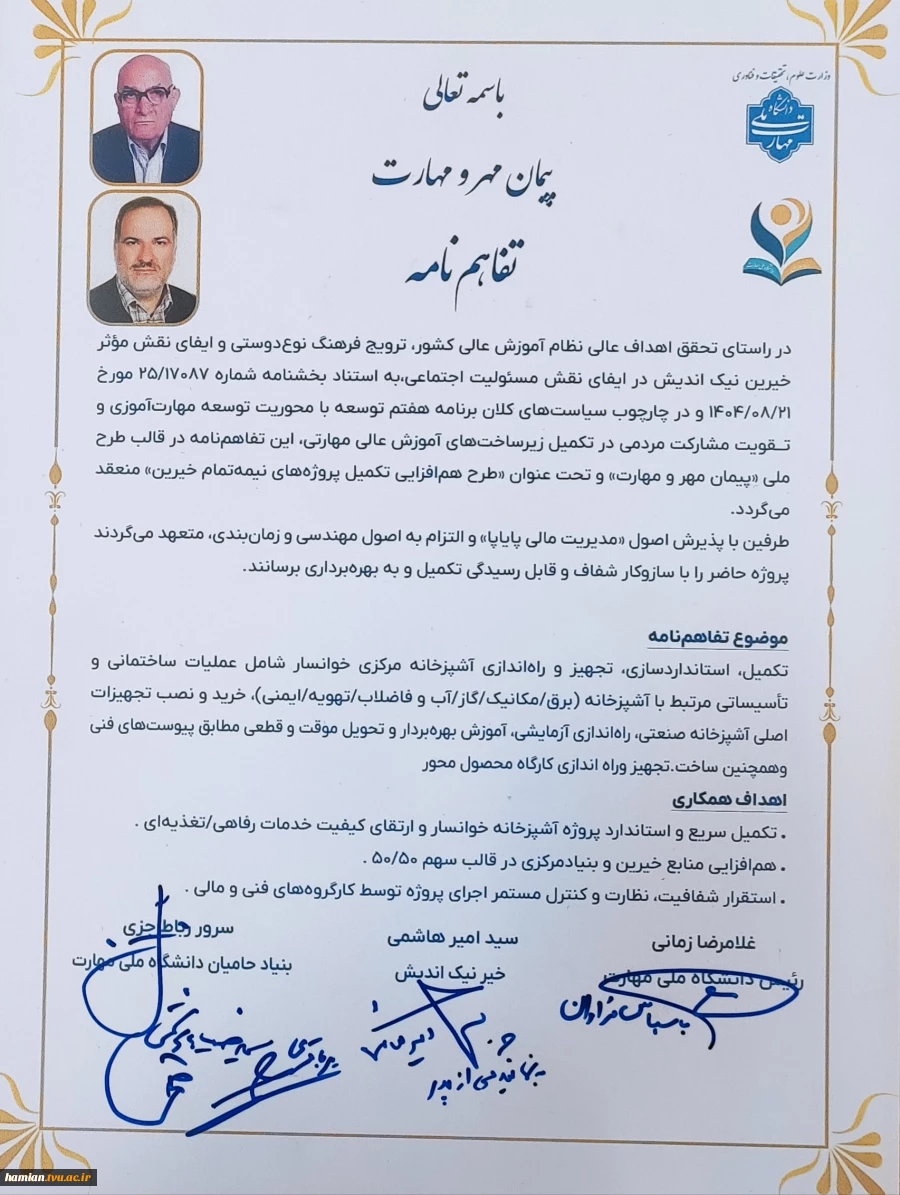 باسمه تعالی
وزارت علوم، تحقیقات و فناوری
دانشگاه ملی مهارت
پیمان مهر و مهارت
تفاهم نامه
در راستای تحقق اهداف عالی نظام آموزش عالی کشور، ترویج فرهنگ نوع‌دوستی و ایفای نقش مؤثر
خیرین نیک اندیش در ایفای نقش مسئولیت اجتماعی،به استناد بخشنامه شماره ۲۵/۱۷۰۸۷ مورخ
۱۴۰۴/۰۸/۲۱ و در چارچوب سیاست‌های کلان برنامه هفتم توسعه با محوریت توسعه مهارت‌آموزی و
تـقویت مشارکت مردمی در تکمیل زیرساخت‌های آموزش عالی مهارتی، این تفاهم‌نامه در قالب طرح
ملی «پیمان مهر و مهارت» و تحت عنوان «طرح هم‌افزایی تکمیل پروژه‌های نیمه‌تمام خیرین» منعقد
می‌گردد.
طرفین با پذیرش اصول «مدیریت مالی پایاپا» و التزام به اصول مهندسی و زمان‌بندی، متعهد می‌گردند
پروژه حاضر را با سازوکار شفاف و قابل رسیدگی تکمیل و به بهره‌برداری برسانند.
موضوع تفاهم‌نامه
تکمیل، استانداردسازی، تجهیز و راه‌اندازی آشپزخانه مرکزی خوانسار شامل عملیات ساختمانی و
تأسیساتی مرتبط با آشپزخانه (برق/مکانیک/گاز/آب و فاضلاب/تهویه/ایمنی)، خرید و نصب تجهیزات
اصلی آشپزخانه صنعتی، راه‌اندازی آزمایشی، آموزش بهره‌بردار و تحویل موقت و قطعی مطابق پیوست‌های فنی
وهمچنین ساخت.تجهیز وراه اندازی کارگاه محصول محور
اهداف همکاری
• تکمیل سریع و استاندارد پروژه آشپزخانه خوانسار و ارتقای کیفیت خدمات رفاهی/تغذیه‌ای .
• هم‌افزایی منابع خیرین و بنیادمرکزی در قالب سهم ۵۰/۵۰ .
• استقرار شفافیت، نظارت و کنترل مستمر اجرای پروژه توسط کارگروه‌های فنی و مالی .
غلامرضا زمانی
رئیس دانشگاه ملی مهارت
سید امیر هاشمی
خیر نیک اندیش
سرور رباط جزی
بنیاد حامیان دانشگاه ملی مهارت
با سپاس فراوان
hamian.tvu.ac.ir